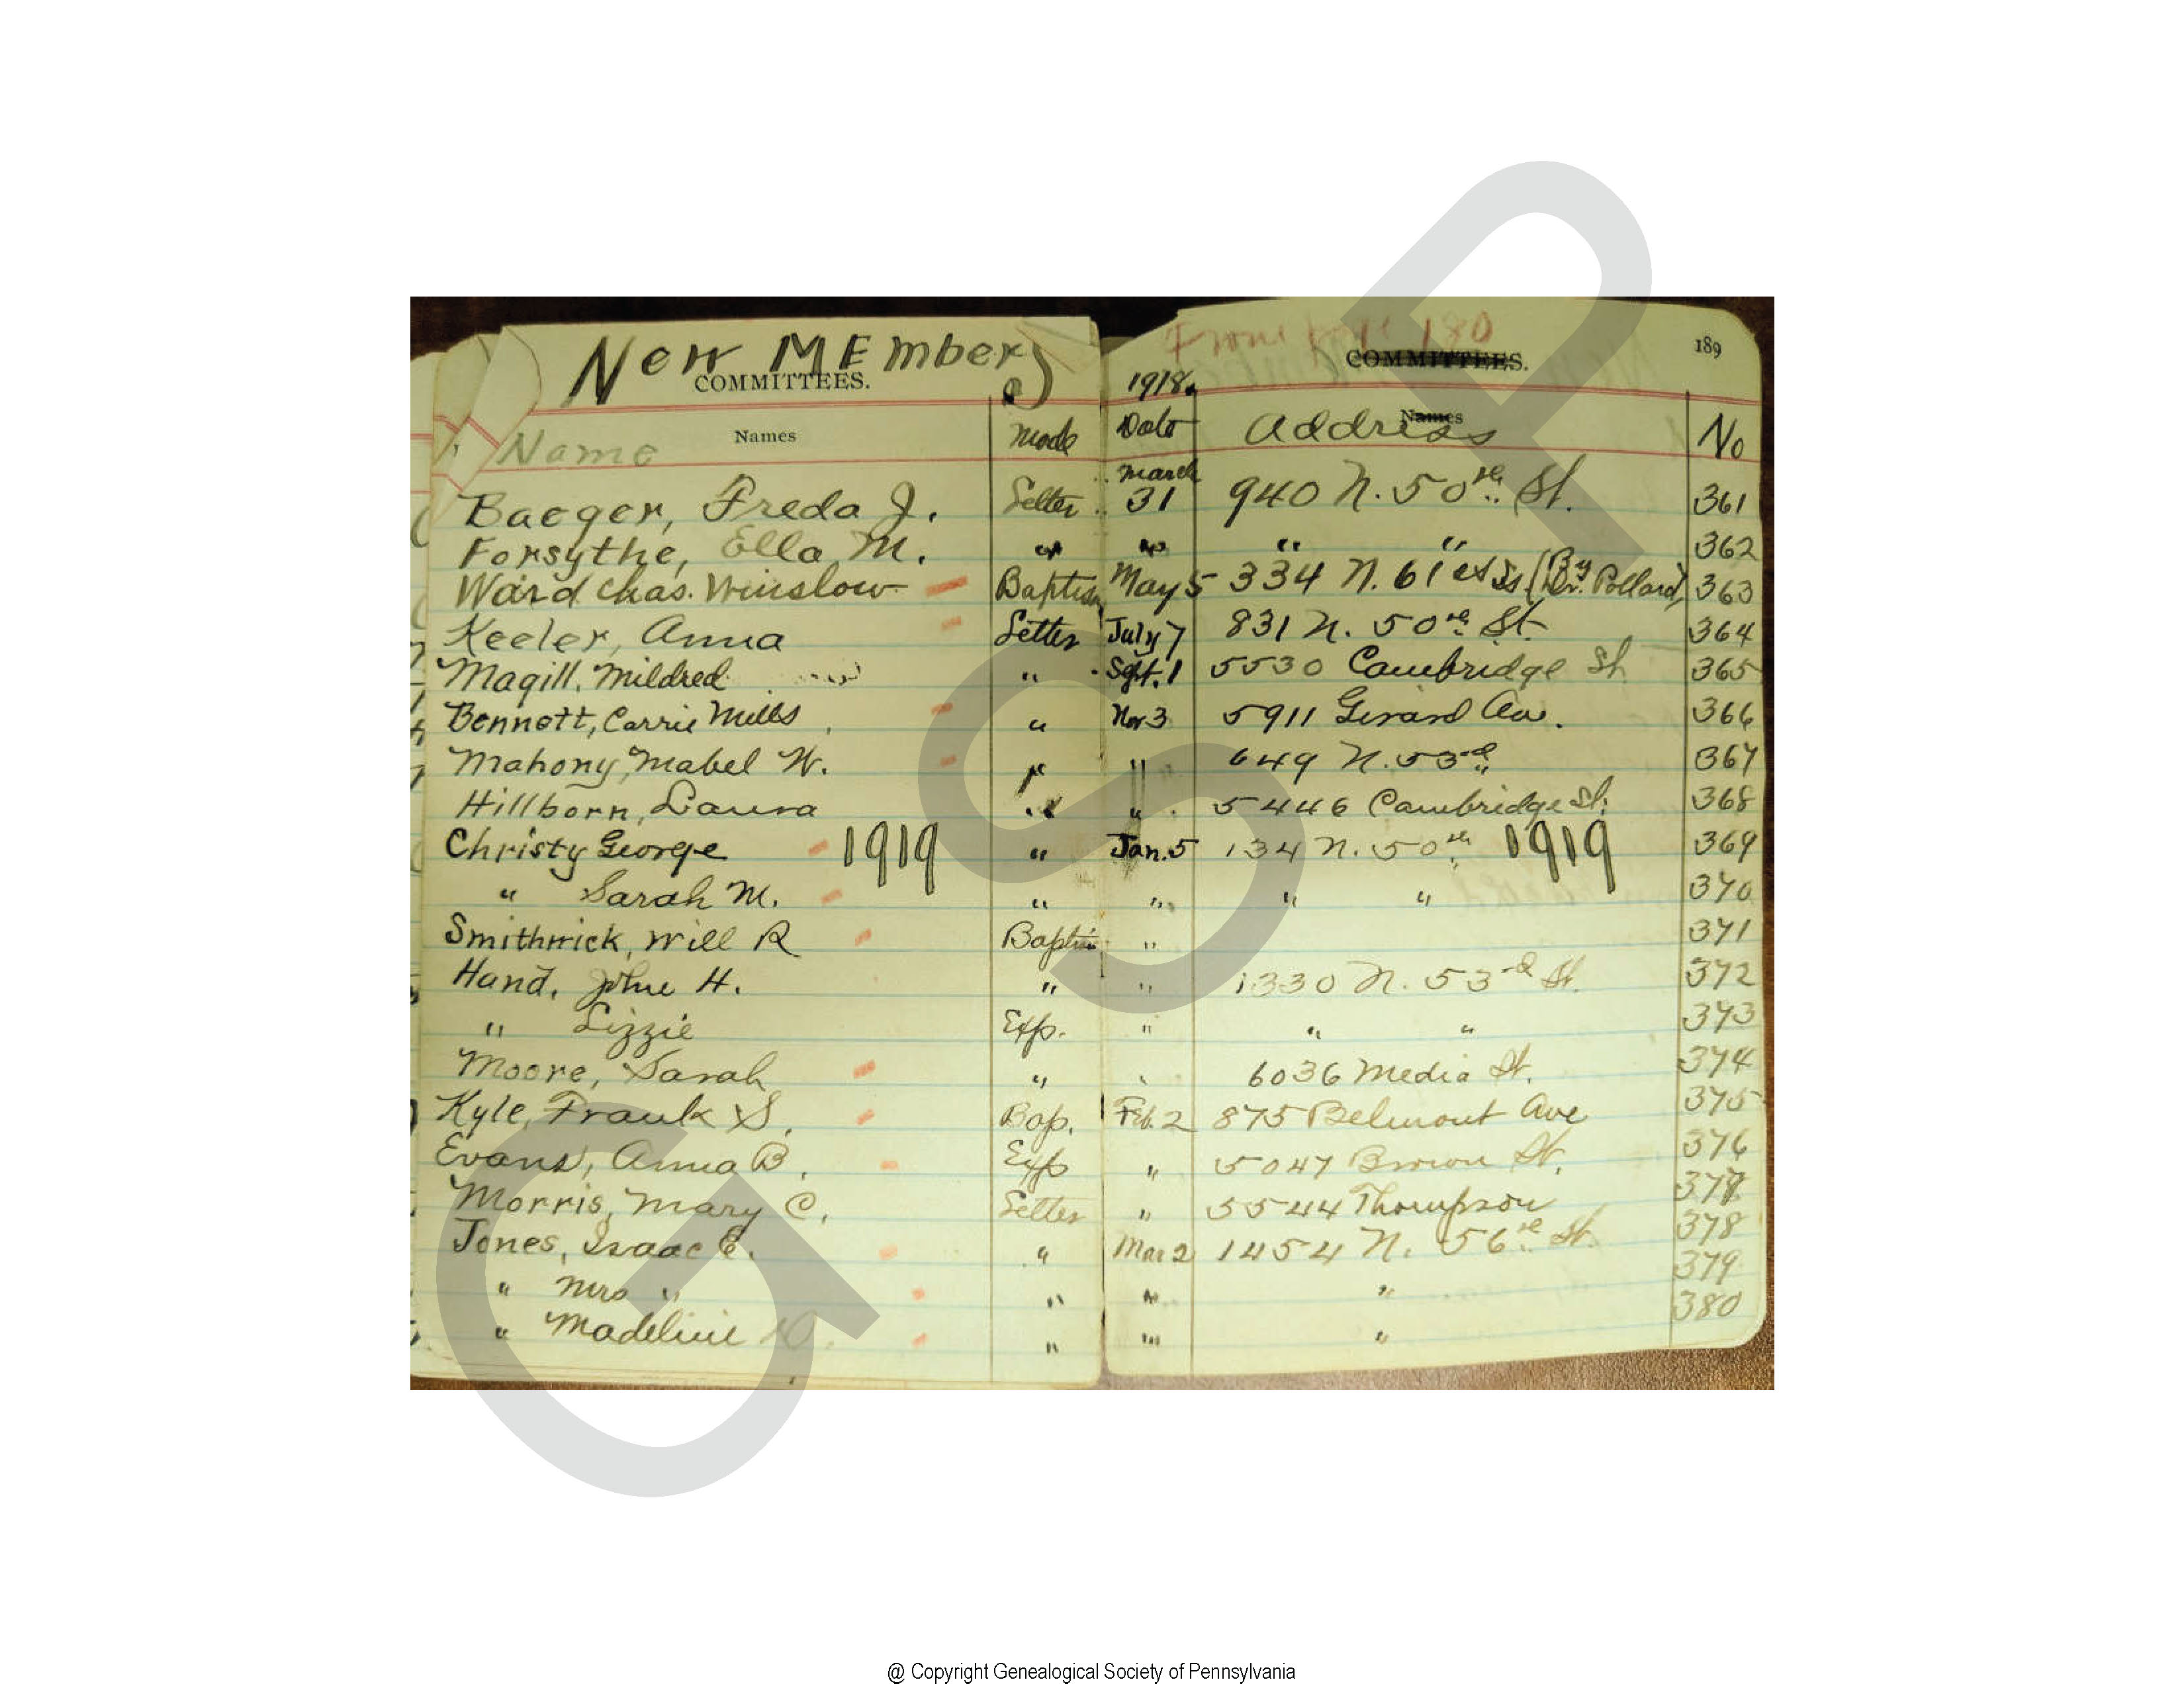 From page 180
New MEmbers
COMMITTEES.
COMMITTEES. 189
1918.
Name Names Mode Date Address Names No
Baeger, Freda J. Letter March 31 940 N. 50th St. 361
Forsythe, Ella M. " " " " 362
Ward Chas. Winslow Baptism May 5 334 N. 61st St. (By Dr. Pollard) 363
Keeler, Anna Letter July 7 831 N. 50th St. 364
Magill, Mildred " Sept. 1 5530 Cambridge St. 365
Bennett, Carrie Mills " Nov 3 5911 Girard Av. 366
Mahony, Mabel W. " " 649 N. 53rd 367
Hillborn, Laura " " 5446 Cambridge St. 368
Christy George 1919 " Jan. 5 134 N. 50th 1919 369
" Sarah M. " " " " 370
Smithwick, Will R Baptism " 371
Hand, John H. " " 1330 N. 53rd St. 372
" Lizzie Exp. " " " 373
Moore, Sarah " " 6036 Media St. 374
Kyle, Frank S. Bap. Feb. 2 875 Belmont Ave 375
Evans, Anna B. Exp " 5047 Brown St. 376
Morris, Mary C. Letter " 5544 Thompson 377
Jones, Isaac E. " Mar 2 1454 N. 56th St. 378
" Mrs " " " " 379
" Madeline " " " 380
GSP
@ Copyright Genealogical Society of Pennsylvania